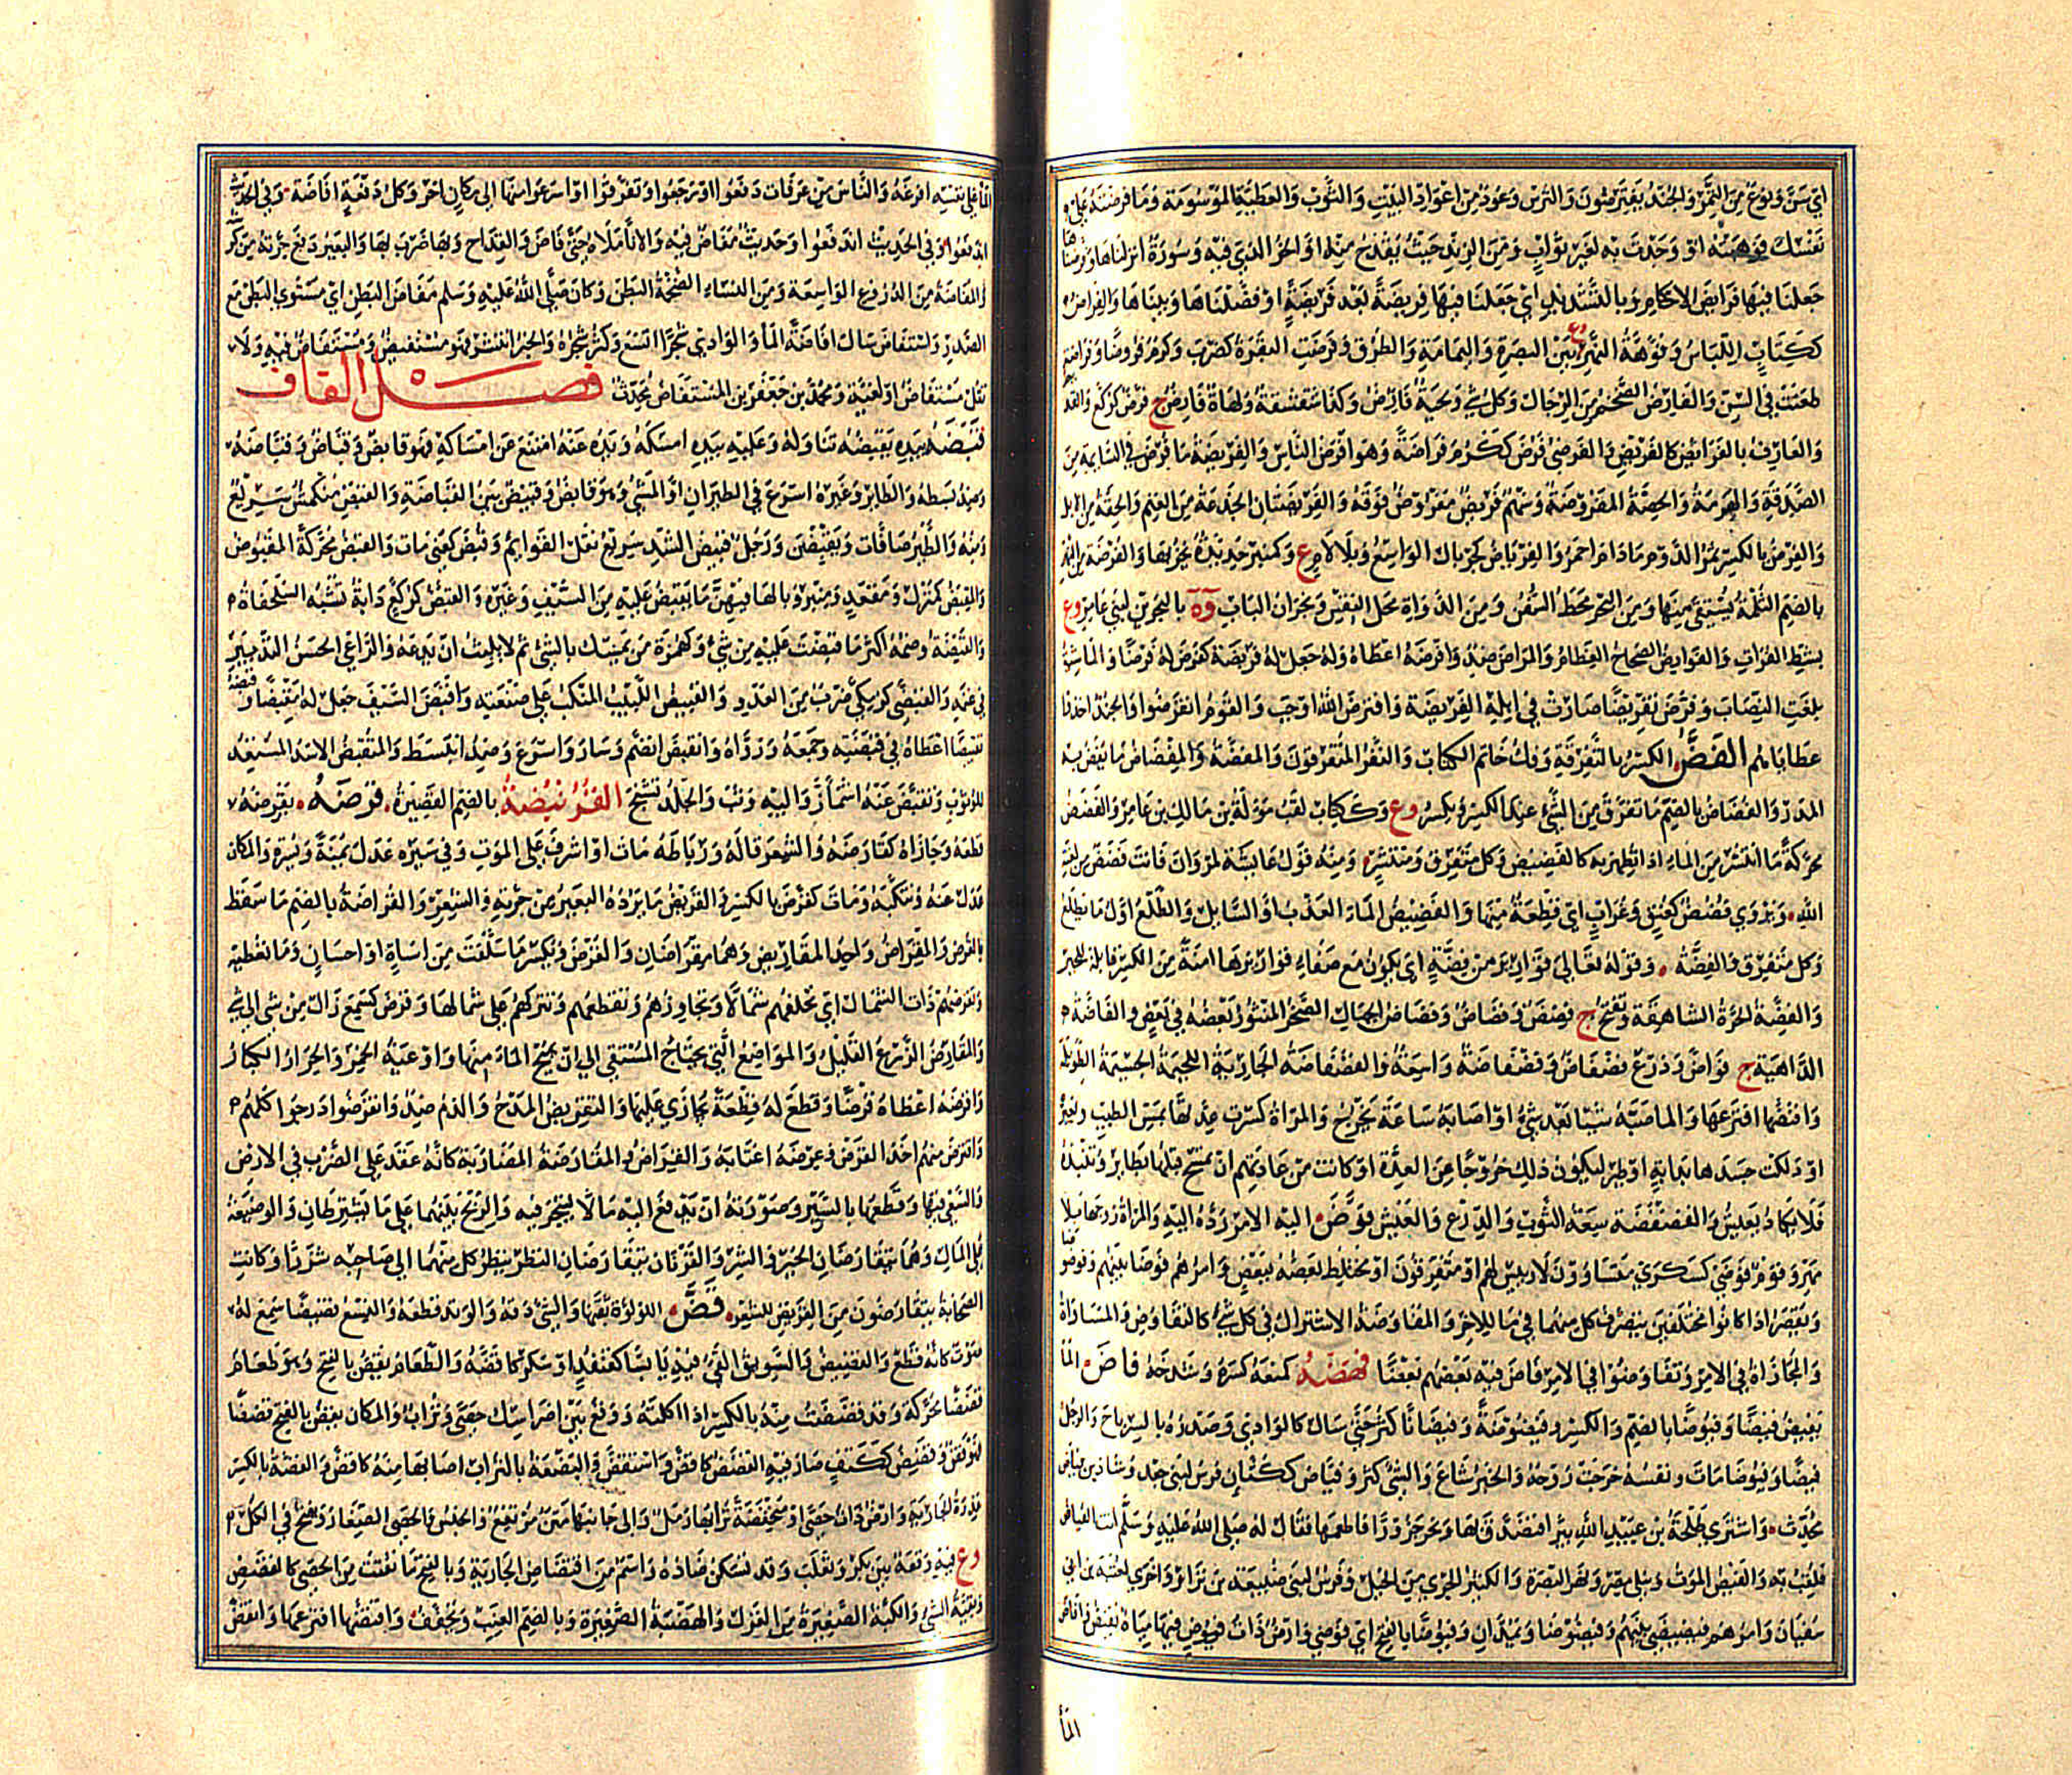 اي سن ونوع من التمر والجند يفترضون والترس وعود من اعواد البيت والثوب والعطية الموسومة وما فرضته على
نفسك فوهبته او وجدت به لغير ثواب ومن الزند حيث يقدح منه او الحز الذي فيه وسورة انزلناها وفرضناها
جعلنا فيها فرائض الاحكام وبالتشديد اي جعلنا فيها فريضة بعد فريضة او فصلناها وبيناها والفراض
ككتاب اللباس وفوهة النهر وع بين البصرة واليمامة والطرق وفرضت البقرة كضرب وكرم فروضا وفراضة
طعنت في السن والفارض الضخم من الرجال وكل شيء ولحية فارض وكذا شقشقة ولهاة فارض ج فرض كركع والقد
والعارف بالفرائض كالفريض والفرضي فرض ككرم فراضة وهو افرض الناس والفريضة ما فرض في السائمة من
الصدقة والهرمة والحصة المفروضة وسهم فريض مفروض فوقه والفريضتان الجذعة من الغنم والحقة من الابل
والفرض بالكسر ثمر الدوم مادام احمر والفرياض كجريال الواسع وبلا لام ع وكمنبر حديدة يحز بها والفرضة من النهر
بالضم الثلمة يستقى منها ومن البحر محط السفن ومن الدواة محل النقس ونجران الباب وة بالبحرين لبني عامر وع
بشط الفرات والفوارض الصحاح العظام والمراض ضد وافرضه اعطاه وله جعل له فريضة كفرض له فرضا والماشية
بلغت النصاب وفرض تفريضا صارت في ابله الفريضة وافترض الله اوجب والقوم انقرضوا والجند اخذوا
عطاياهم الفض الكسر بالتفرقة وفك خاتم الكتاب والنفر المتفرقون والمفضة والمفضاض ما يفض به
المدر والفضاض بالضم ما تفرق من الشيء عند الكسر ويكسر وع وككتاب لقب موءلة بن مالك بن عامر والفضض
محركة ما انتشر من الماء اذا تطهر به كالفضيض وكل متفرق ومنتشر ومنه قول عايشة لمروان فانت فضض من لعنة
الله ويروى فضض كعنق وغراب اي قطعة منها والفضيض الماء العذب او السائل والطلع اول ما يطلع
وكل متفرق والفضة وقوله تعالى قوارير من فضة اي يكون مع صفاء قواريرها امنة من الكسر قابلة للجبر
والفضة الحرة الشاهقة وتفتح ج فضض وفضاض وفضاض الجبال الصخر المنثور بعضه في بعض والفاضة
الداهية ج فواض ودرع فضفاض وفضفاضة واسعة والفضفاضة الجارية اللحيمة الجسيمة الطويلة
وافتضها افترعها والماء صبه شيئا بعد شيء او اصابه ساعة يخرج والمراة كسرت عدتها بمس الطيب وغيره
او دلكت جسدها بدابة او طير ليكون ذلك خروجا عن العدة او كانت من عادتهم ان تمسح قبلها بطاير وتنبذه
فلا يكاد يعيش والفضفضة سعة الثوب والدرع والعيش فوض اليه الامر رده اليه والمراة زوجها بلا
مهر وقوم فوضى كسكرى متساوون لا رييس لهم او متفرقون او مختلط بعضهم ببعض وامرهم فوضى بينهم وفوضوضا
ويقصر اذا كانوا مختلفين يتصرف كل منهما في ما للاخر والمفاوضة الاشتراك في كل شيء كالتفاوض والمساواة
والمجاراة في الامر وتفاوضوا في الامر فاوض فيه بعضهم بعضا فهضه كمنعه كسره وشدخه فاض الماء
يفيض فيضا وفيوضا بالضم والكسر وفيضوضة وفيضانا كثر حتى سال كالوادي وصدره بالسر باح والرجل
فيضا وفيوضا مات ونفسه خرجت روحه والخبر شاع والشيء كثر وفياض ككتان فرس لبني جعد وشاذ بن فياض
محدث واشترى طلحة بن عبيد الله بيرا فتصدق بها ونحر جزورا فاطعمها فقال له صلى الله عليه وسلم انت الفياض
فلقب به والفيض الموت ونيل مصر ونهر البصرة والكثير الجري من الخيل وفرس لبني ضبيعة بن نزار واخرى لعتبة بن ابي
سفيان وامرهم فيضيضى بينهم وفيضوضا ويمدان وفيوضا بالفتح اي فوضى وارض ذات فيوض فيها مياه تفيض وافاض
الماء
الماء على نفسه افرغه والناس من عرفات دفعوا او رجعوا وتفرقوا او اسرعوا منها الى مكان اخر وكل دفعة افاضة وفي الحديث
اندفعوا وفي الحديث اندفعوا وحديث مفاض فيه والاناء ملاه حتى فاض والقداح وبها ضرب بها والبعير دفع جرته من كرشه
والمفاضة من الدروع الواسعة ومن النساء الضخمة البطن وكان صلى الله عليه وسلم مفاض البطن اي مستوي البطن مع
الصدر واستفاض سال افاضة الماء والوادي شجرا اتسع وكثر شجره والخبر انتشر فهو مستفيض ومستفاض فيه ولا
تقل مستفاض او لغية ومحمد بن جعفر بن المستفاض محدث فصل القاف
قبضه بيده يقبضه تناوله وعليه بيده امسكه ويده عنه امتنع عن امساكه فهو قابض وقباض وقباضة
وضد بسطه والطائر وغيره اسرع في الطيران او المشي وهو قابض وقبيض بين القباضة والقبض منكمش سريع
ومنه والطير صافات ويقبضن ورجل قبيض الشد سريع نقل القوائم وقبض كعني مات والقبض محركة المقبوض
والمقبض كمنزل ومقعد ومنبر وبالهاء فيهن ما يقبض عليه من السيف وغيره والقبض كركع دابة تشبه السلحفاة
والقبضة وضمه اكثر ما قبضت عليه من شيء وكهمزة من تمسك بالشيء ثم لا يلبث ان يدعه والراعي الحسن التدبير
في غنمه والقبضى كزمكى ضرب من العدو والقبيض اللبيب المنكب على صنعته واقبض السيف جعل له مقبضا وقبضه
تقبيضا اعطاه في قبضته وجمعه وزواه وانقبض انضم وسار واسرع وضد انبسط والمتقبض الاسد المستعد
للوثوب وتقبض عنه اشمأز واليه وثب والجلد تشنج القرنبضة بالضم القصيرة قرضه يقرضه
قطعه وجازاه كقارضه والشعر قاله ورباطه مات او اشرف على الموت وفي سيره عدل يمنة ويسرة والمكان
عدل عنه وتنكبه ومات كقرض بالكسر والقريض ما يرده البعير من جرته والشعر والقراضة بالضم ما سقط
بالقرض والمقراض واحد المقاريض وهما مقراضان والقرض ويكسر ما سلفت من اساءة او احسان وما تعطيه
وتقرضهم ذات الشمال اي تخلفهم شمالا وتجاوزهم وتقطعهم وتتركهم على شمالها وقرض كسمع زال من شيء الى شيء
والمقارض الزرع القليل والمواضع التي يحتاج المستقي الى ان يميح الماء منها واوعية الخمر والجرار الكبار
واقرضه اعطاه قرضا وقطع له قطعة يجازي عليها والتقريض المدح والذم ضد وانقرضوا درجوا كلهم
واقترض منهم اخذ القرض وعرضه اغتابه والقراض والمقارضة المضاربة كانه عقد على الضرب في الارض
والسعي فيها وقطعها بالسير وصورته ان يدفع اليه مالا ليتجر فيه والربح بينهما على ما يشترطان والوضيعة
على المال وهما يتقارضان الخير والشر والقرنان يتقارضان النظر ينظر كل منهما الى صاحبه شزرا وكانت
الصحابة يتقارضون من القريض للشعر قض اللؤلؤة ثقبها والشيء دقه والوتد قطعه والنسع قضيضا سمع له
صوت كانه قطع والقضيض والسويق القى فيه يابسا كقند او سكر كاقضه والطعام يقض بالفتح وهو طعام
قضضا محركة وقد قضضت منه بالكسر اذا اكلته ووقع بين اضراسك حصى وتراب والمكان يقض بالفتح قضضا
فهو قض وقضيض ككتف صار فيه القضض كاقض واستقض والبضعة بالتراب اصابها منه كاقض والقضة بالكسر
عذرة الجارية وارض ذات حصى او منخفضة ترابها رمل والى جانبها متن مرتفع والجنس والحصى الصغار ويفتح في الكل
وع فيه وقعة بين بكر وتغلب وقد تسكن ضاده واسم من اقتضاض الجارية وبالفتح ما تفتت من الحصى كالقضض
وبقية الشيء والكبة الصغيرة من الغزل والهضبة الصغيرة وبالضم العيب ويخفف واقتضها افترعها وانقض